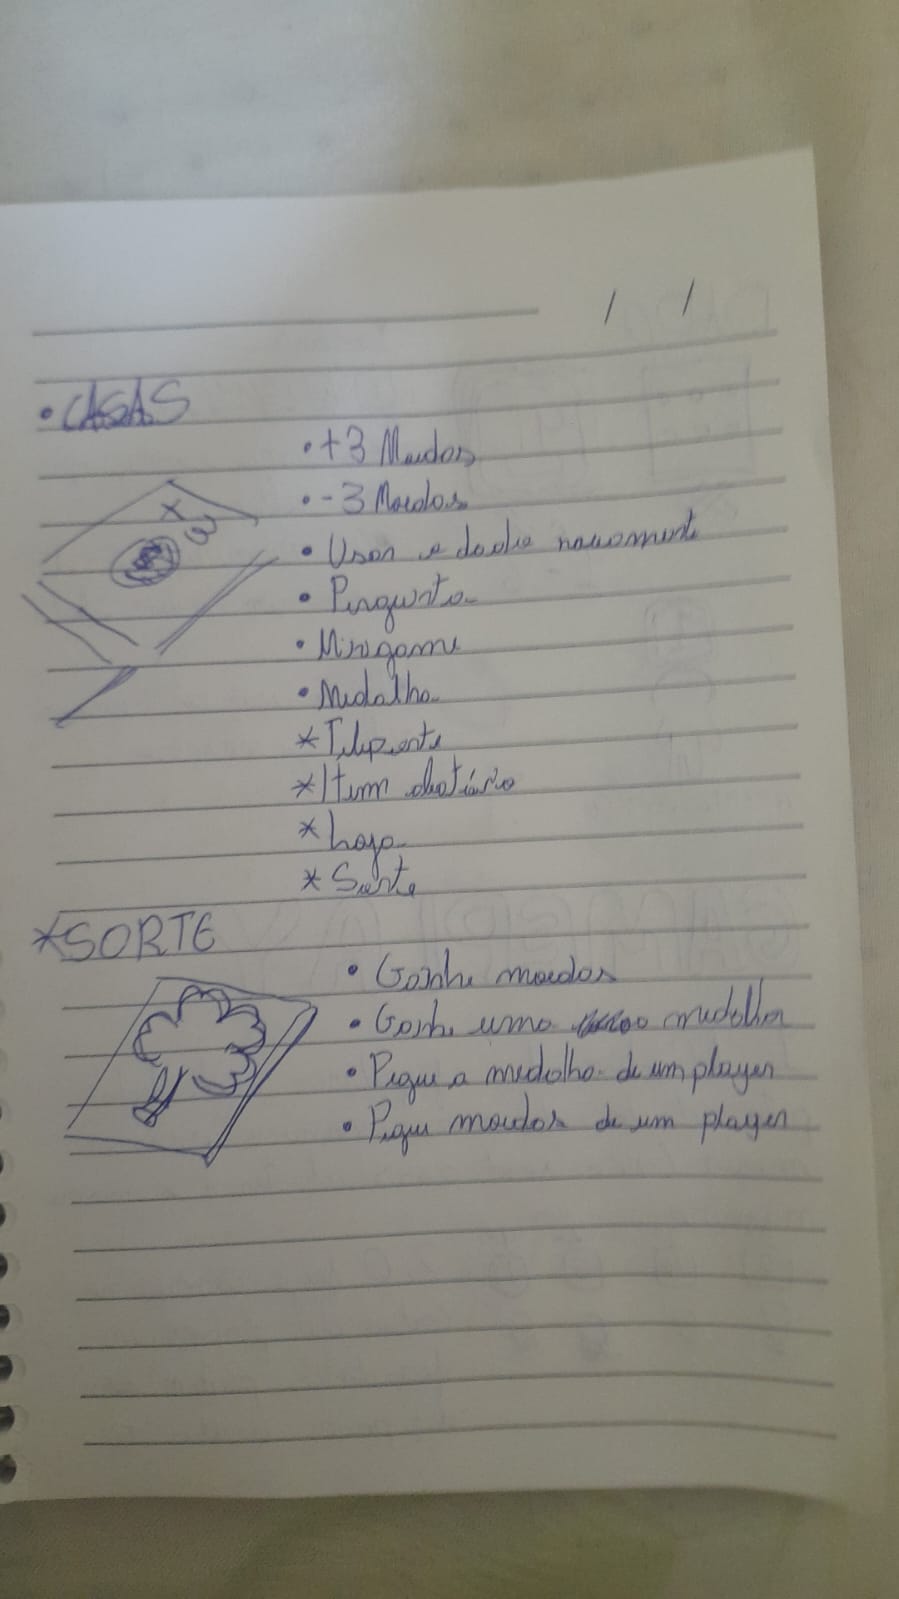 / /
• CASAS
• +3 Moedas
• -3 Moedas
• Usar o dado novamente
• Pergunta
• Minigame
• Medalha
* Teleporte
* Item aleatório
* Loja
* Sorte
x 3
* SORTE
• Ganhe moedas
• Ganhe uma medalha
• Pegue a medalha de um player
• Pegue moedas de um player